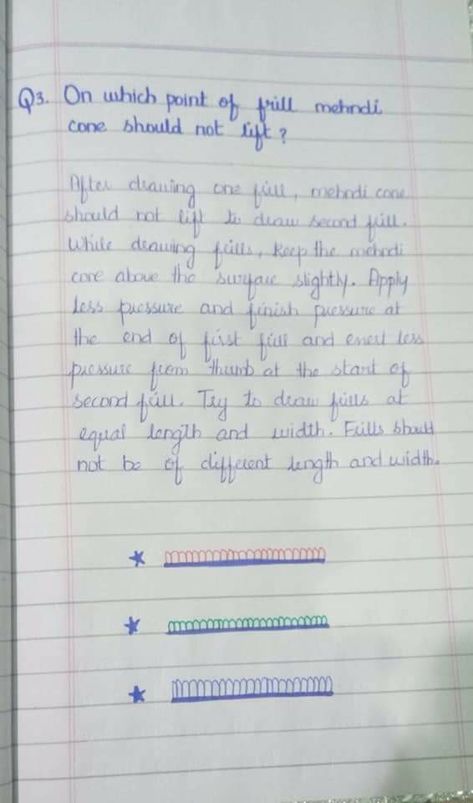 Q3. On which point of frill mehndi
cone should not lift?
After drawing one frill, mehndi cone
should not lift to draw second frill.
While drawing frills, keep the mehndi
cone above the surface slightly. Apply
less pressure and finish pressure at
the end of first frill and exert less
pressure from thumb at the start of
second frill. Try to draw frills at
equal length and width. Frills should
not be of different length and width.